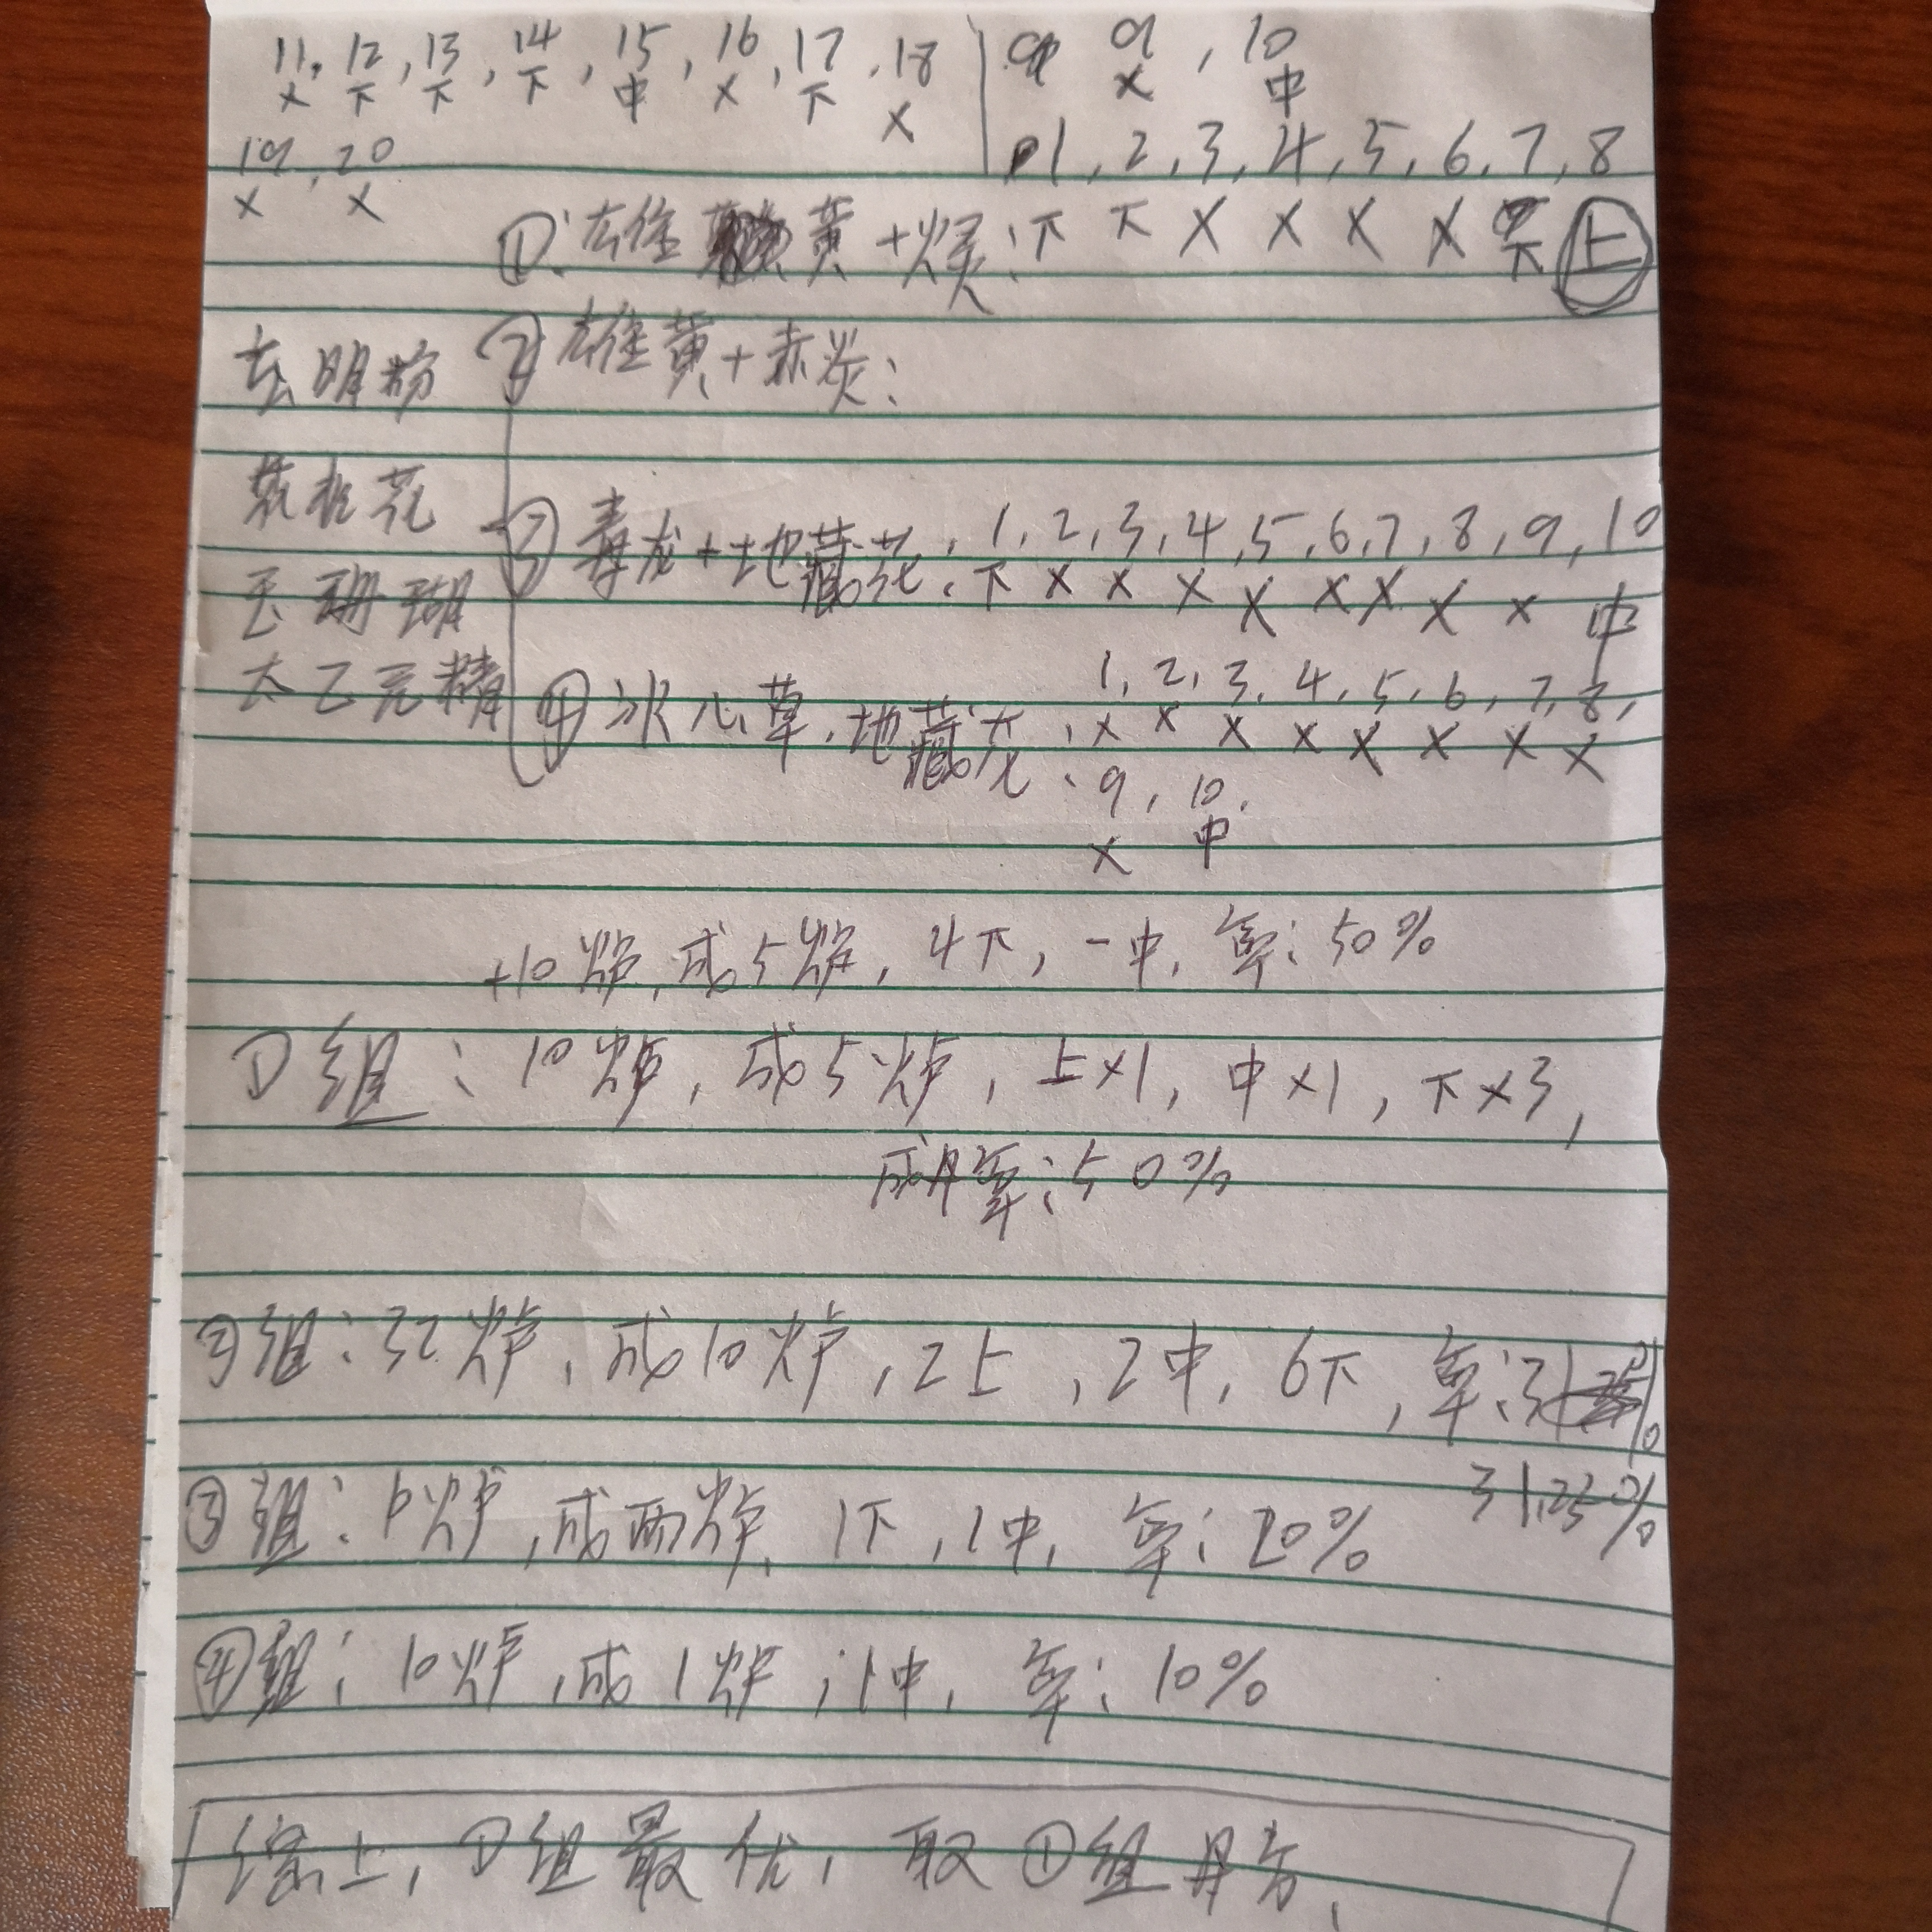 11, 12, 13, 14, 15, 16, 17, 18
× 下 下 下 中 × 下 ×
19, 20
× ×
9, 10
× 中
1, 2, 3, 4, 5, 6, 7, 8
①: 雄黄+: 下 下 × × × × 下 上
玄明粉
② 雄黄+赤炭:
花
③ 毒龙+地藏花: 1, 2, 3, 4, 5, 6, 7, 8, 9, 10
下 × × × × × × × × 中
玉珊瑚
太乙元精
④ 冰心草, 地藏花: 1, 2, 3, 4, 5, 6, 7, 8,
× × × × × × × ×
9, 10,
× 中
+10炉, 成5炉, 4下, 一中, 率: 50%
①组: 10炉, 成5炉, 上×1, 中×1, 下×3,
成丹率: 50%
②组: 32炉, 成10炉, 2上, 2中, 6下, 率:
31.25%
③组: 10炉, 成两炉, 1下, 1中, 率: 20%
④组: 10炉, 成1炉; 1中, 率: 10%
综上, ①组最优, 取①组丹方,